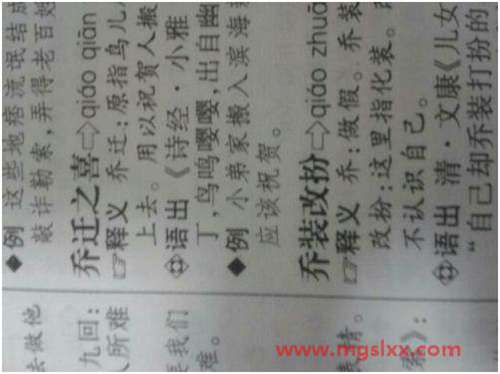 去做他
九回:
人所难
要我们
难。
青。
索》:
◆例 这些地痞流氓结成
敲诈勒索,弄得老百姓
乔迁之喜⇨qiáo qiān
☞释义 乔迁:原指鸟儿
上去。用以祝贺人搬
语出《诗经·小雅
丁,鸟鸣嘤嘤,出自幽
◆例 小弟家搬入滨海
应该祝贺。
乔装改扮⇨qiáo zhuā
☞释义 乔:做假。乔装
改扮:这里指化装。
不认识自己。
语出 清·文康《儿女
“自己却乔装打扮的
www.mgslxx.com